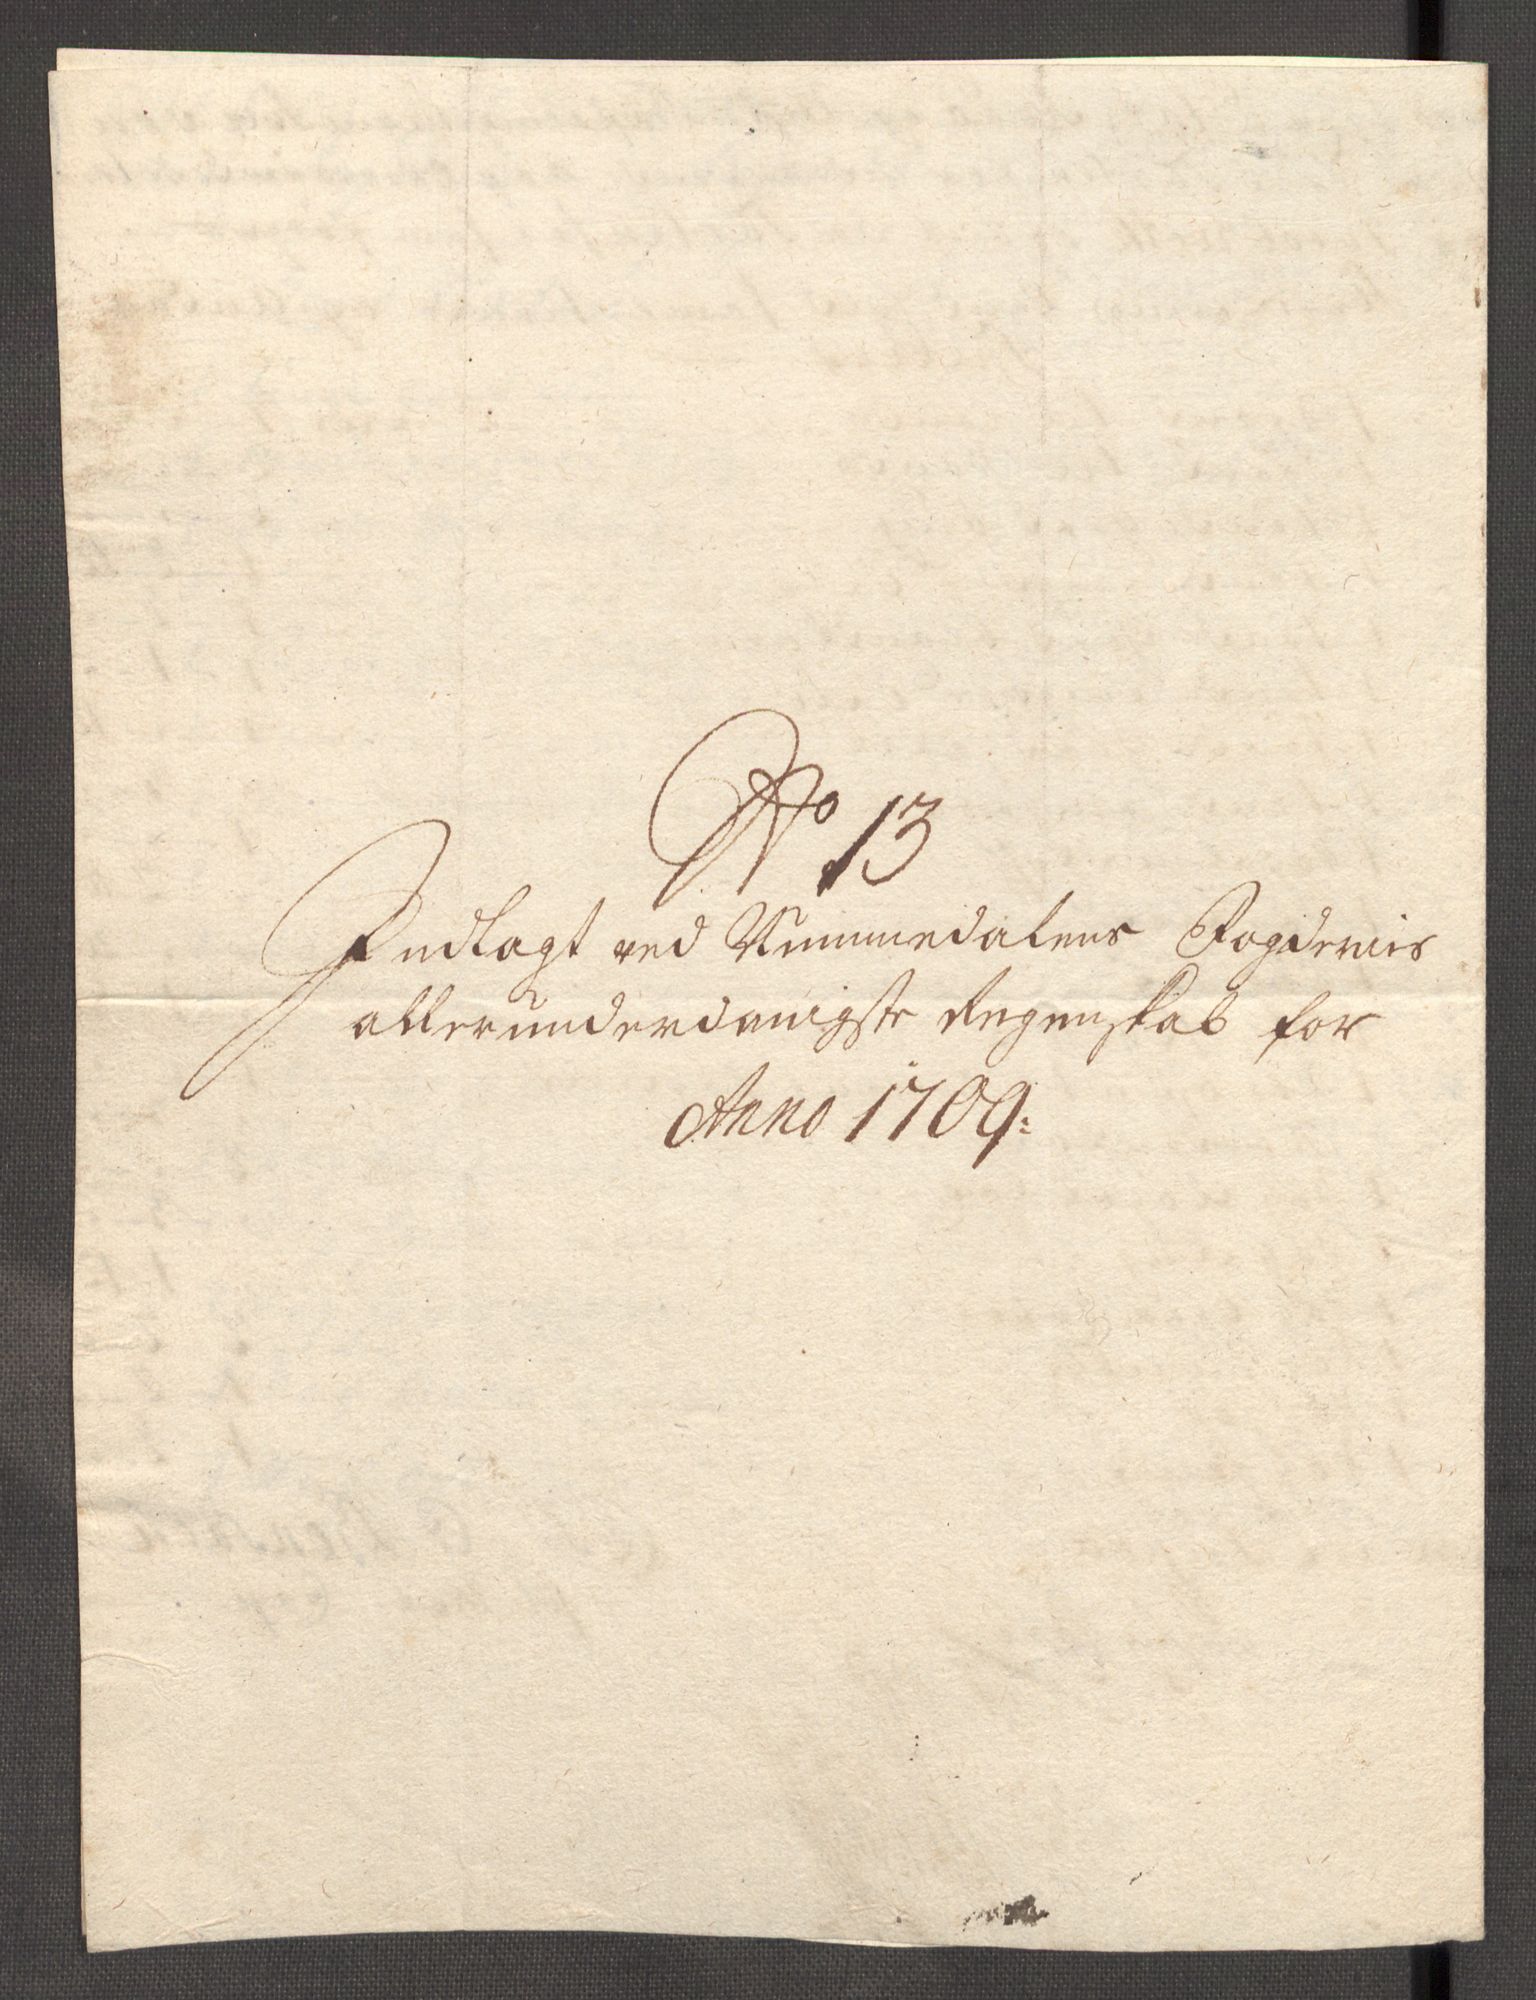 No 13
Indlagt ved Nummedalens Fogderies
allerunderdanigste Regenskab for
Anno 1709: